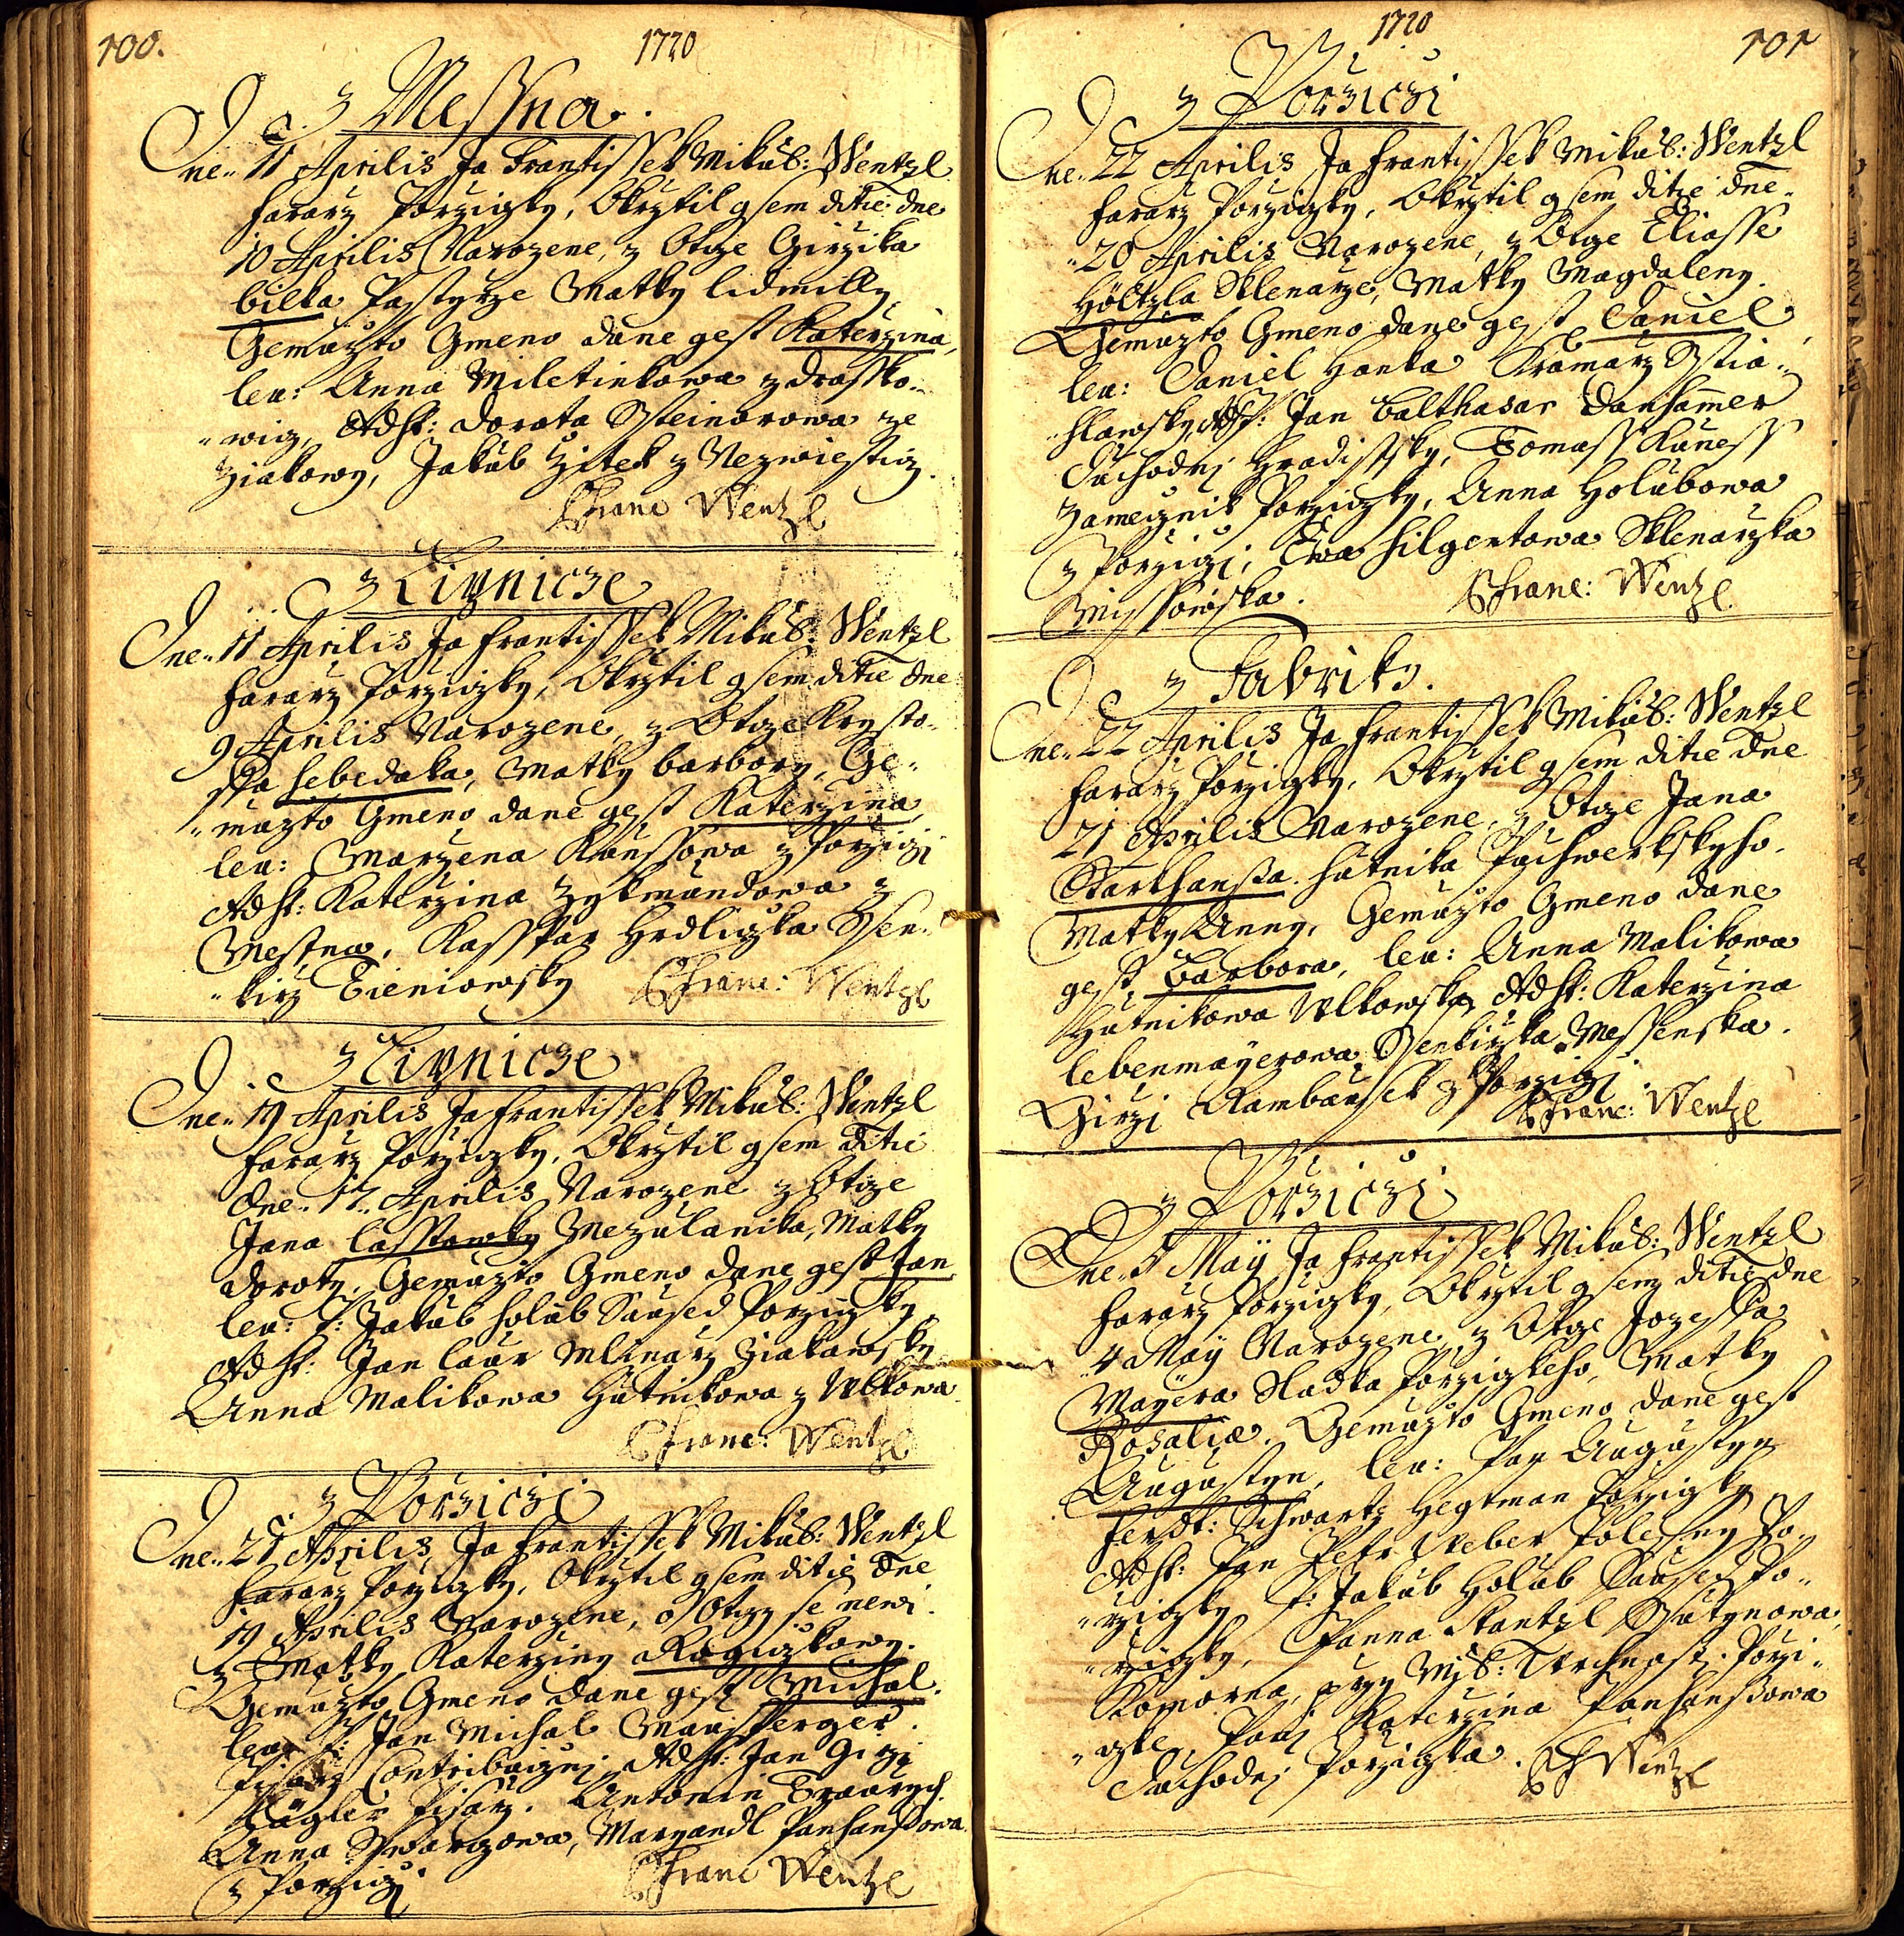 100.
1720
z Messna.
Dne 11 Aprilis Ja Frantissek Mikul: Wentzl
Fararz Porzizky, Okrztil gsem ditie dne
10 Aprilis Narozene, z Otcze Girzika
bilka Pastyrze Matky lidmilly,
Gemuzto Gmeno dane gest Katerzina,
leu: Anna Miletinkowa z drassko-
wicz, Adst: Dorota Steinarowa ze
Ziakowy, Jakub Zitek z Nezwiesticz.
Franc Wentzl
z Liznicze
Dne 11 Aprilis Ja Frantissek Mikul: Wentzl
Fararz Porzizky, Okrztil gsem ditie dne
9 Aprilis Narozene, z Otcze Krysto-
ffa sebedaka, Matky barbory, Ge-
muzto Gmeno dane gest Katerzina,
leu: Marzena Kunssowa z Porziczi
Adst: Katerzina Zykmundowa z
Mestna, Kasspar Hrdliczka Ssen-
kirz Tieniowsky Franc: Wentzl
z Liznicze
Dne 19 Aprilis Ja Frantissek Mikul: Wentzl
Fararz Porzizky, Okrztil gsem ditie
dne 17 Aprilis Narozene z Otcze
Jana lasstowky Mezulanika, Matky
doroty, Gemuzto Gmeno dane gest Jan
leu: P: Jakub holub Saused Porzizky
Adst: Jan laur Mlinarz Ziakowsky
Anna Malikowa Hutnikowa z Wlkowa
Franc: Wentzl
z Porziczi
Dne 21 Aprilis, Ja Frantissek Mikul: Wentzl
Fararz Porzizky, Okrztil gsem ditie dne
19 Aprilis Narozene, o Otczy se newi
z Matky Katerziny
Gemuzto Gmeno dane gest Michal.
leu: P: Jan Michal Mansperger
Pisarz Contribuczni, Adst: Jan Girzi
Kägler Pisarz. Antonin
Anna Swarczowa, Maryandl Panhanssowa
z Porziczi Franc Wentzl
1720
101
z Porziczi
Dne 22 Aprilis Ja Frantissek Mikul: Wentzl
Fararz Porzizky, Okrztil gsem ditie dne
20 Aprilis Narozene, z Otcze Eliasse
Höltzla Sklenarze, Matky Magdaleny.
Gemuzto Gmeno dane gest Daniel,
leu: Daniel Hanka Kramarz Sstia-
hlawsky, Adst: Jan Balthasar Danhamer
Duchodni Hradistsky, Tomass Kuness
Zamecznik Porzizky, Anna Holubowa
z Porziczi, Ewa Hilgertowa Sklenarzka
Missowska. Franc: Wentzl
z Fabriky.
Dne 22 Aprilis Ja Frantissek Mikul: Wentzl
Fararz Porzizky, Okrztil gsem ditie dne
21 Aprilis Narozene, z Otcze Jana
Starkhanssa hutnika Pochwerkskyho.
Matky Anny, Gemuzto Gmeno dane
gest Barbora, leu: Anna Malikowa
Hutnikowa Wlkowska, Adst: Katerzina
lebenmayerowa Ssenkirzka Messenska.
Girzi Rambausek z Porziczi.
Franc: Wentzl
z Porziczi
Dne 5 May Ja Frantissek Mikul: Wentzl
Fararz Porzizky, Okrztil gsem ditie dne
4 May Narozene, z Otcze Jozeffa
Mayera Sladka Porzizkeho, Matky
Rosalie. Gemuzto Gmeno dane gest
Augustyn, leu: Pan Augustyn
Ferdt: Schwartz Hegtman Porzizky
Adst: Pan Petr Weber Polesny Po-
rzizky P: Jakub Holub Saused Po-
rzizky, Panna Stantzl
Komorna, przy Mil: Wrchnosti Porzi-
czke, Pani Katerzina Panhanssowa
Duchodni Porzizka. F Wentzl